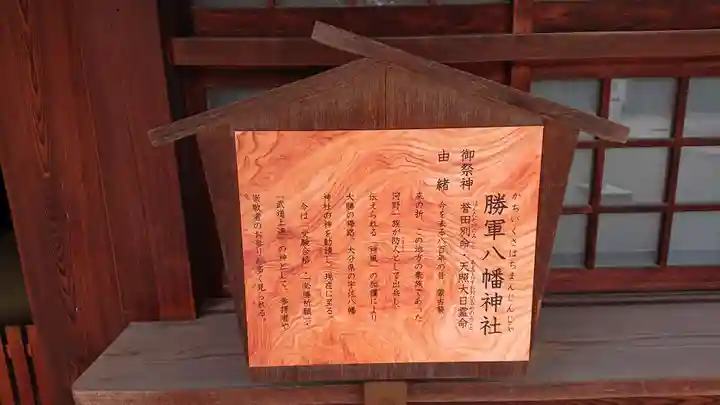 かちいくさはちまんじんじゃ
勝軍八幡神社
御祭神 誉田別命・天照大日孁命
由緒 今を去る八百年の昔 蒙古襲
来の折、この地方の豪族であった
河野一族が防人として出兵し、
伝えられる「神風」の加護により
大勝の帰路、大分県の宇佐八幡
神社の神を勧請して現在に至る。
今は「受験合格」・「必勝祈願」・
「武道上達」の神として、参拝者や
崇敬者のお参りが多く見られる。